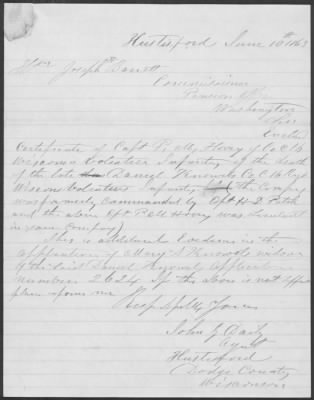 Hustisford June 10th 1863
Hon Joseph H Barrett
Commissioner
Pension Office
Washington
Sir
Enclosed
Certificate of Capt P. M. Hovey of Co C 16
Wisconsin Volunteer Infantry of the death
of the late Daniel Knowls Co C 16 Regt
Wiscon Volunteer Infantry (the Company
was formerly commanded by Capt H D Patch
and the above Capt P M Hovey was Lieutenant
in said Company)
This is additional Evidence in the
application of Mary A Knowls widow
of the said Daniel Knowls Applicati
number 2624 If the above is not
please inform me
Resp fully Yours
John G Daily
Agent
Hustisford
Dodge County
Wisconsin